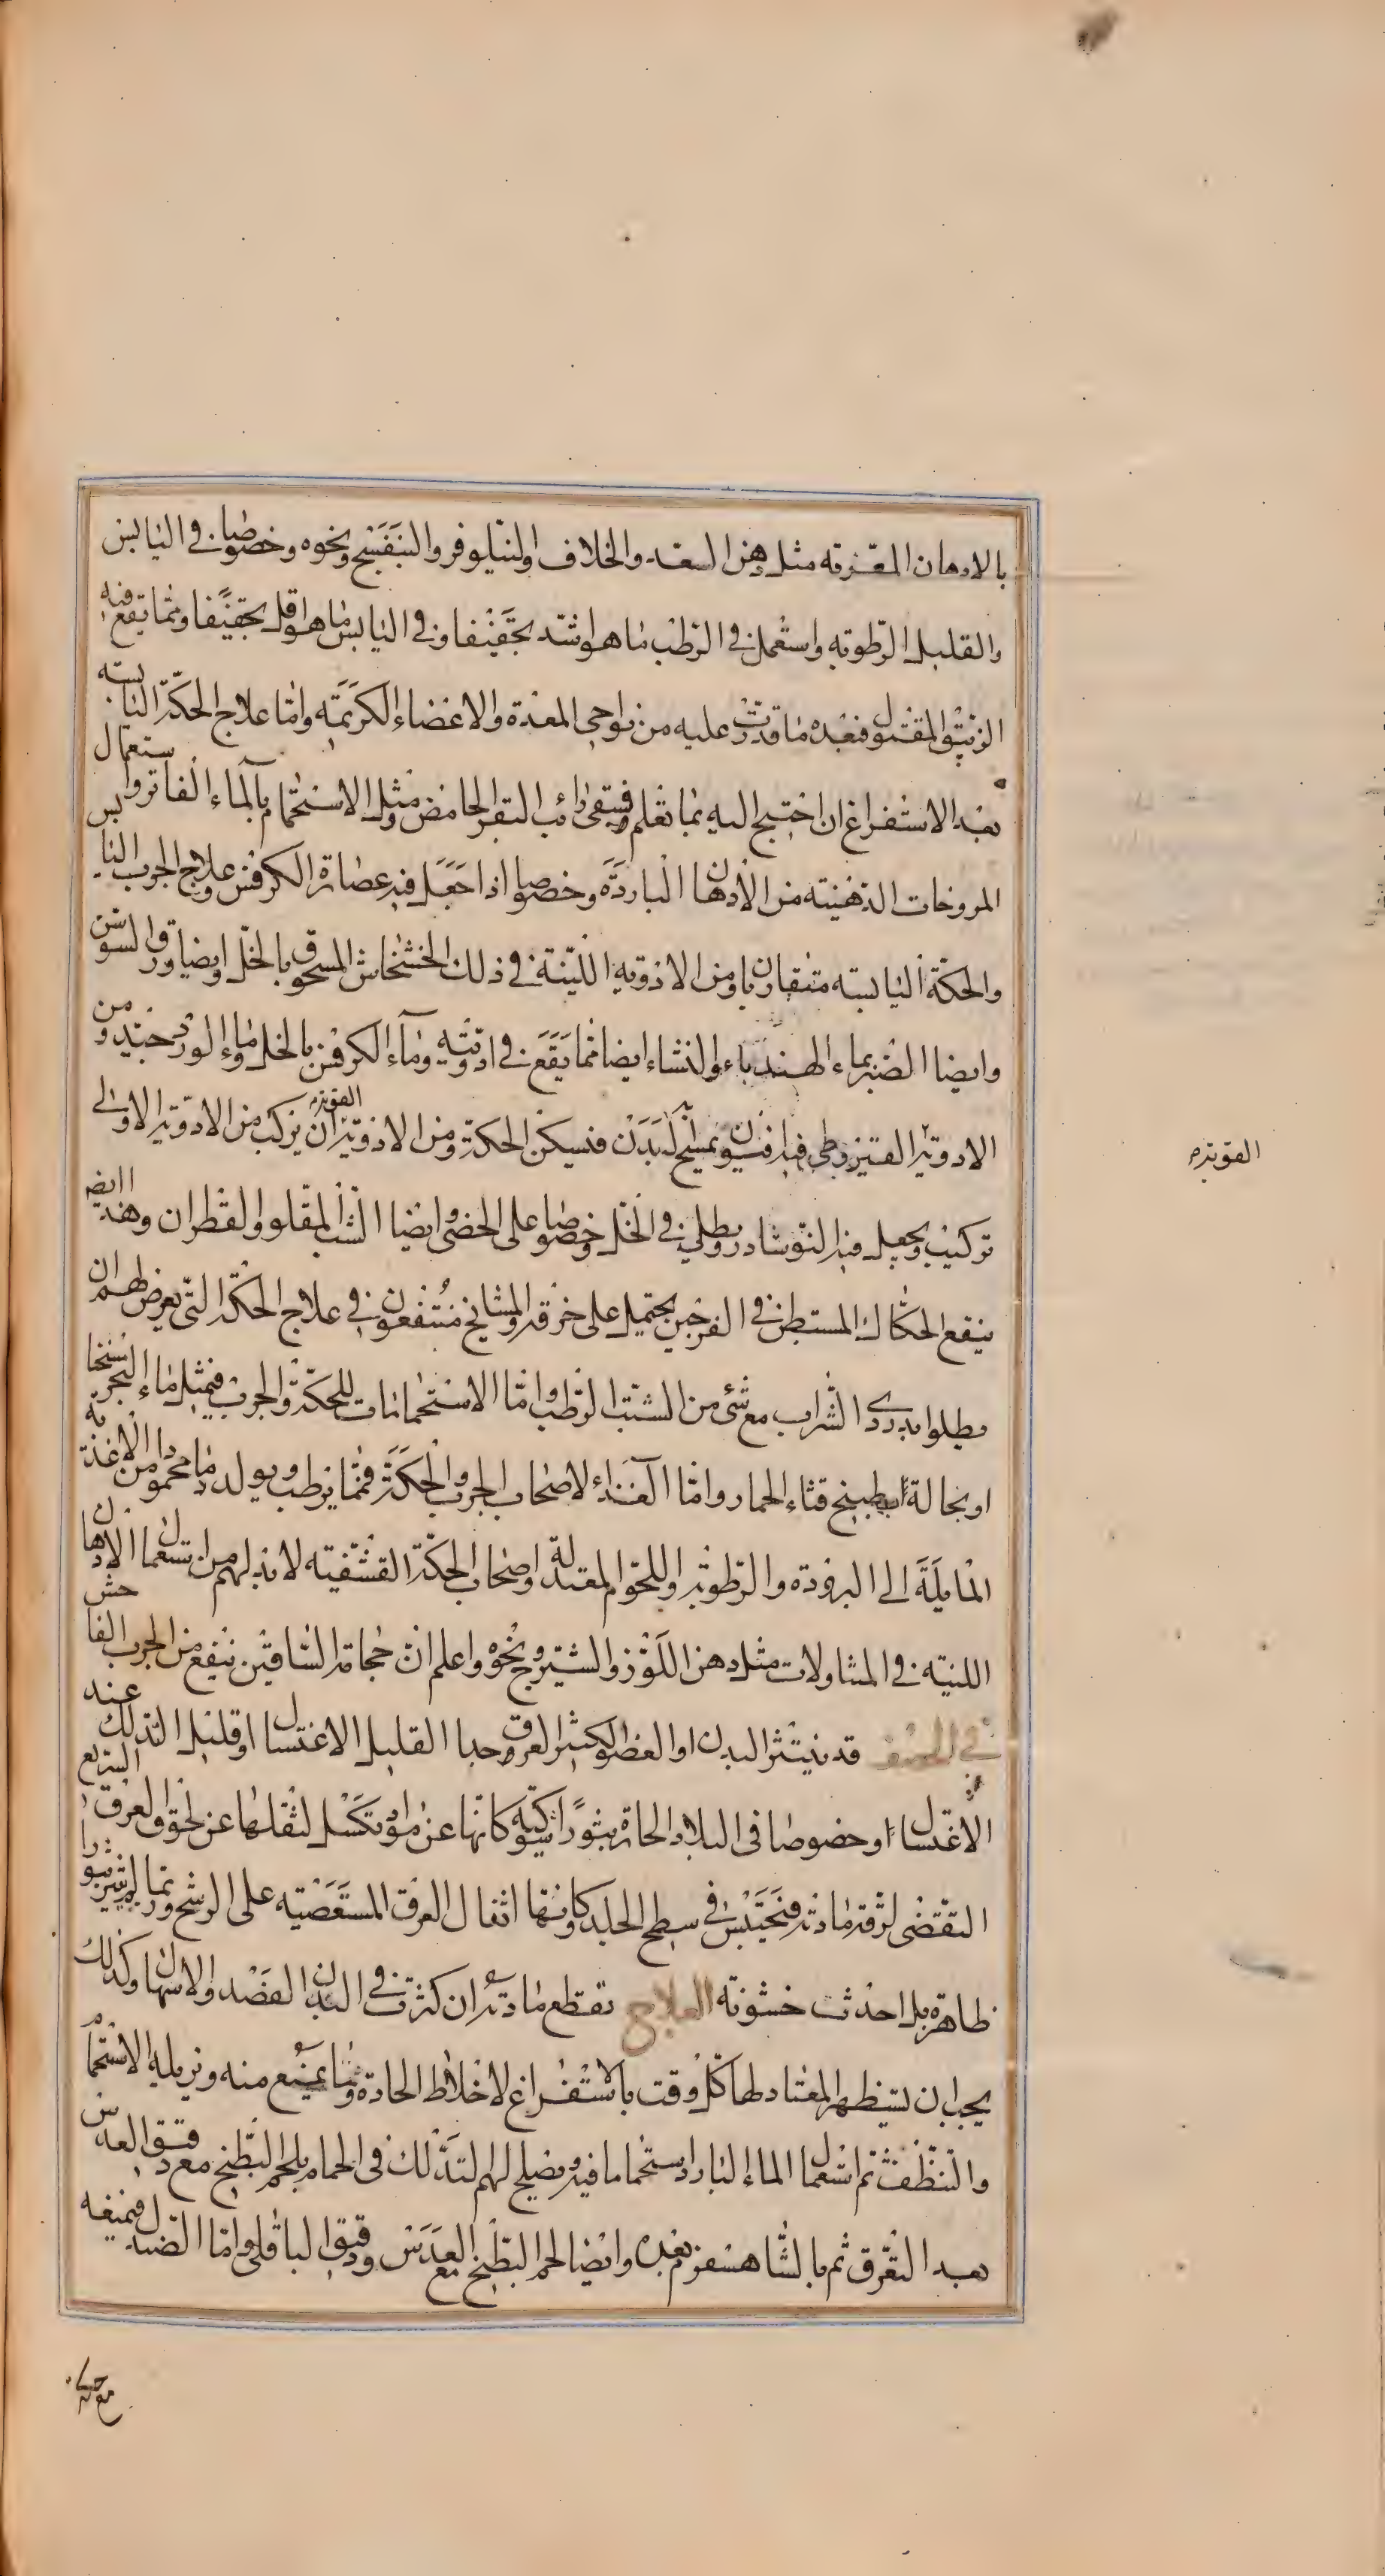 بالادهان المقترته مثل دهن السعد والخلاف او لنيلوفر والبنفسج ونحوه وخصوصا في اليابس
والقليل الرطوبه واستعمل في الرطب ما هو اشد تجفيفا وفي اليابس ما هو اقل تجفيفا ومما يقع فيه
الزئبق المقتول فبعده ما قدرت عليه من نواحي المعدة والاعضاء الكريمه واما علاج الحكة اليابسه
بعد الاستفراغ ان احتيج اليه بما تعلم فيسقى رائب البقر الحامض ومثل الاستحمام بالماء الفاتر واستعمال
المروخات الدهنيته من الادهان الباردة وخصوصا اذا جعل فيه عصارة الكرفس وعلاج الجرب اليابس
والحكة اليابسه متقاربان ومن الادويه اللينة في ذلك الخشخاش المسحوق بالخل وايضا ورق السوسن
وايضا الصبر بماء الهندباء والنشاء ايضا مما يقع في ادويته وماء الكرفس بالخل وماء الورد جيد ومن
الادويه القيروطي فيه افيون يمسح به البدن فيسكن الحكة ومن الادوية القويه ان يركب من الادويه الاولى
تركيب ويجعل فيه النوشادر ويطلى في الخل وخصوصا على الخصى وايضا الشب المقلو والقطران وهذا ايضه
ينفع الحكاك المستبطن في الفرجين يحتمل على خرقه والمشايخ منتفعون في علاج الحكة التي يعرض لهم ان
يطلوا بدردى الشراب مع شئ من الشب الرطب واما الاستحمامات للحكة والجرب فبمثل ماء البحر سنخا
او بخالة او بطبيخ قثاء الحمار واما الغذاء لاصحاب الجرب والحكة فمما يرطب ويولد دما محمودا من الاغذية
المايلة الى البرودة والرطوبة واللحوم المعتدلة واصحاب الحكة القشفيه لا بد لهم من استعمال الادهان
اللينيه في المتناولات مثل دهن اللوز والشيرج ونحوه واعلم ان حجامة الساقين ينفع من الجرب الفاحش
في الحصف قد يتبثر البدن او العضو الكثير العرق وجدا القليل الاغتسال او قليل التدلك عند
الاغتسال او خصوصا في البلاد الحارة بثورا شوكيه كانها عن مواد تكسل لثقلها عن لحوق العرق السريع
التقضى لرقة مادته فتحتبس في سطح الجلد وكانها اثفال العرق المستعصيه على الرشح وربما لم تبثر بثورا
ظاهرة بل احدثت خشونة العلاج تقطع مادته ان كثرت في البدن الفصد والاسهال وكذلك
يجب ان يستظهر المعتاد لها كل وقت بالاستفراغ لاخلاط الحادة ومما يمنع منه ويزيله الاستحمام
والتنظف ثم استعمال الماء البارد استحماما فيه ويصلح لهم التدلك في الحمام بلحم البطيخ مع دقيق العدس
بعد التعرق ثم بالشاهسفرم بعده وايضا لحم البطيخ مع العدس ودقيق الباقلى واما الصندل فيمنعه
القويه